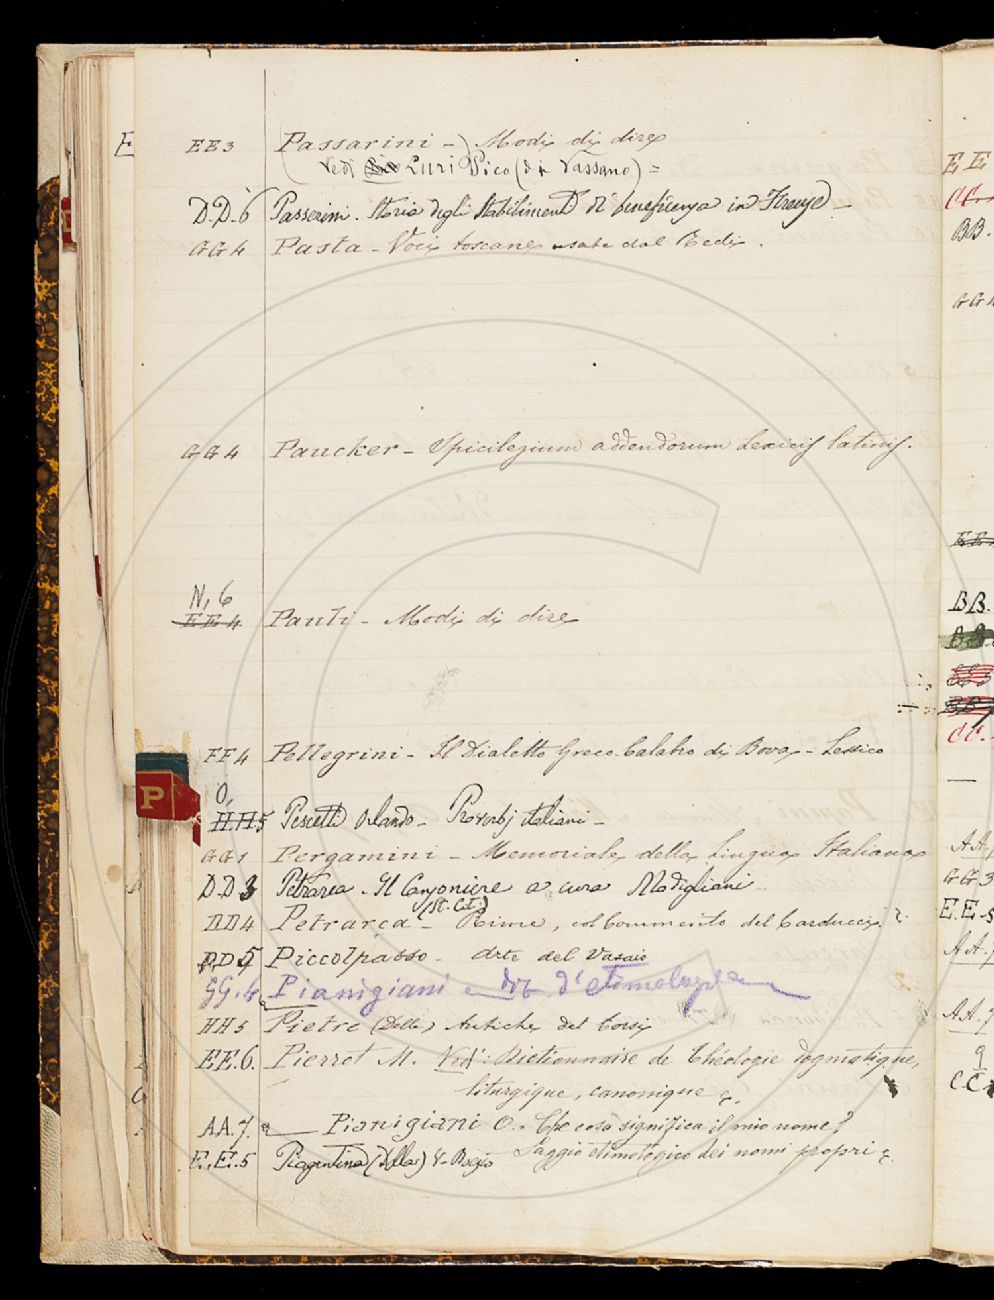 E
EE3 Passarini - Modi di dire
(Vedi Luri Pico (di Vassano) =
D.D.6 Passerini. Storia degli Stabilimenti di beneficenza in Firenze -
GG4 Pasta - Voci toscane usate dal Redi.
GG4 Paucker - Spicilegium addendorum Lexicis latinis.
N, 6
EE4 Pauli - Modi di dire
FF4 Pellegrini - Il Dialetto Greco-Calabro di Bova - Lessico
P
O,
HH5 Pescetti Orlando - Proverbj italiani -
GG1 Pergamini - Memoriale della Lingua Italiana
D.D3 Petrarca - Il Canzoniere a cura Modigliani -
(St. Cit.)
DD4 Petrarca - Rime, col Commento del Carducci.
DD5 Piccolpasso - Arte del Vasaio
GG.4 Pianigiani - diz d'etimologia
HH5 Pietre (Delle) Antiche del Corsi
EE.6. Pierrot M. Vedi: Dictionnaire de Théologie dogmatique,
liturgique, canonique &.
AA.7. Pianigiani O. - Che cosa significa il mio nome?
Saggio etimologico dei nomi propri &.
E.E.5 Piagentina (Della) V. Boezio
E E
BB.
GG4
BB.
CC.
AA.7
GG3
E.E.5
AA.7
AA.7
9
C.C.